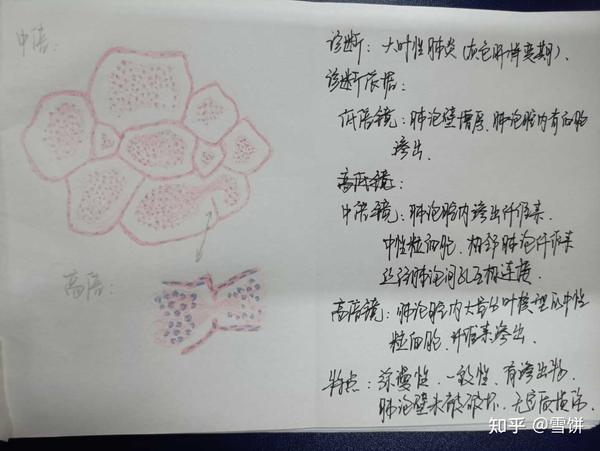 中倍：
高倍：
诊断：大叶性肺炎(灰色肝样变期).
诊断依据：
低倍镜：肺泡壁增厚.肺泡腔内有细胞
渗出.
高低镜：
中倍镜：肺泡腔内渗出纤维素.
中性粒细胞.相邻肺泡纤维素
经肺泡间孔互相连接.
高倍镜：肺泡腔内大量分叶核型中性
粒细胞.纤维素渗出.
特点：弥漫性.一致性.有渗出物.
肺泡壁未被破坏.无实质损伤.
知乎 @雪饼